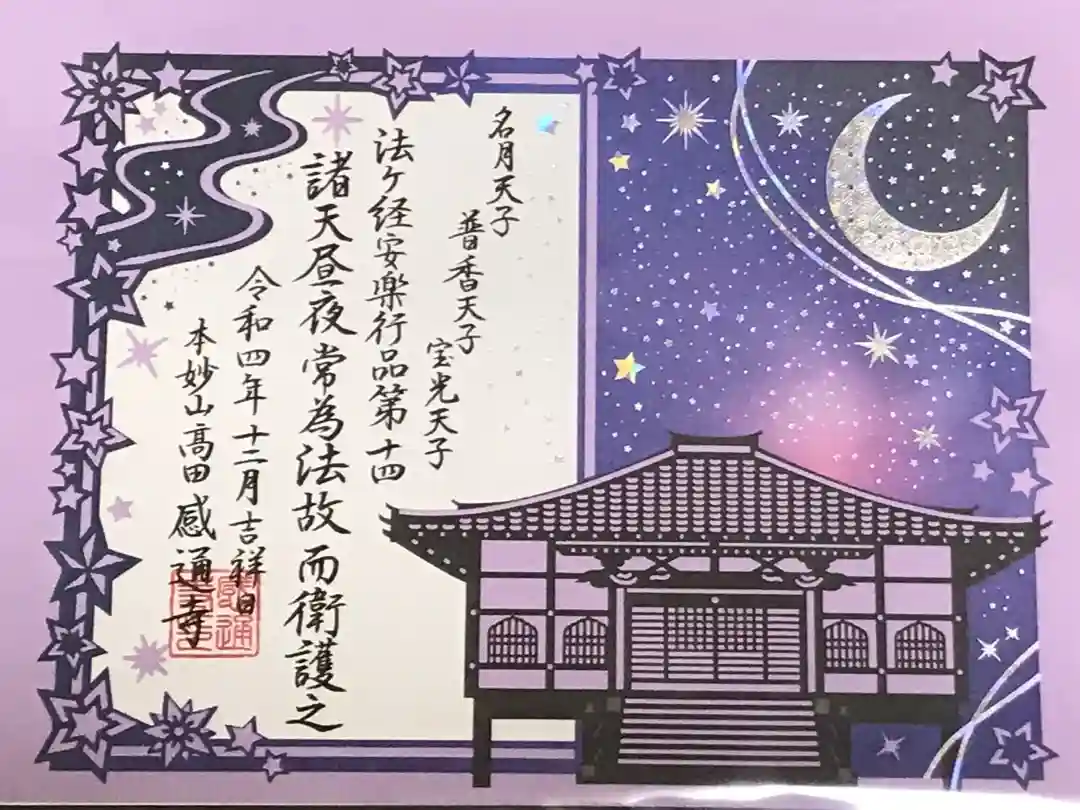 名月天子
普香天子
宝光天子
法ヶ経安楽行品第十四
諸天昼夜常為法故而衛護之
令和四年十二月吉祥日
本妙山高田感通寺